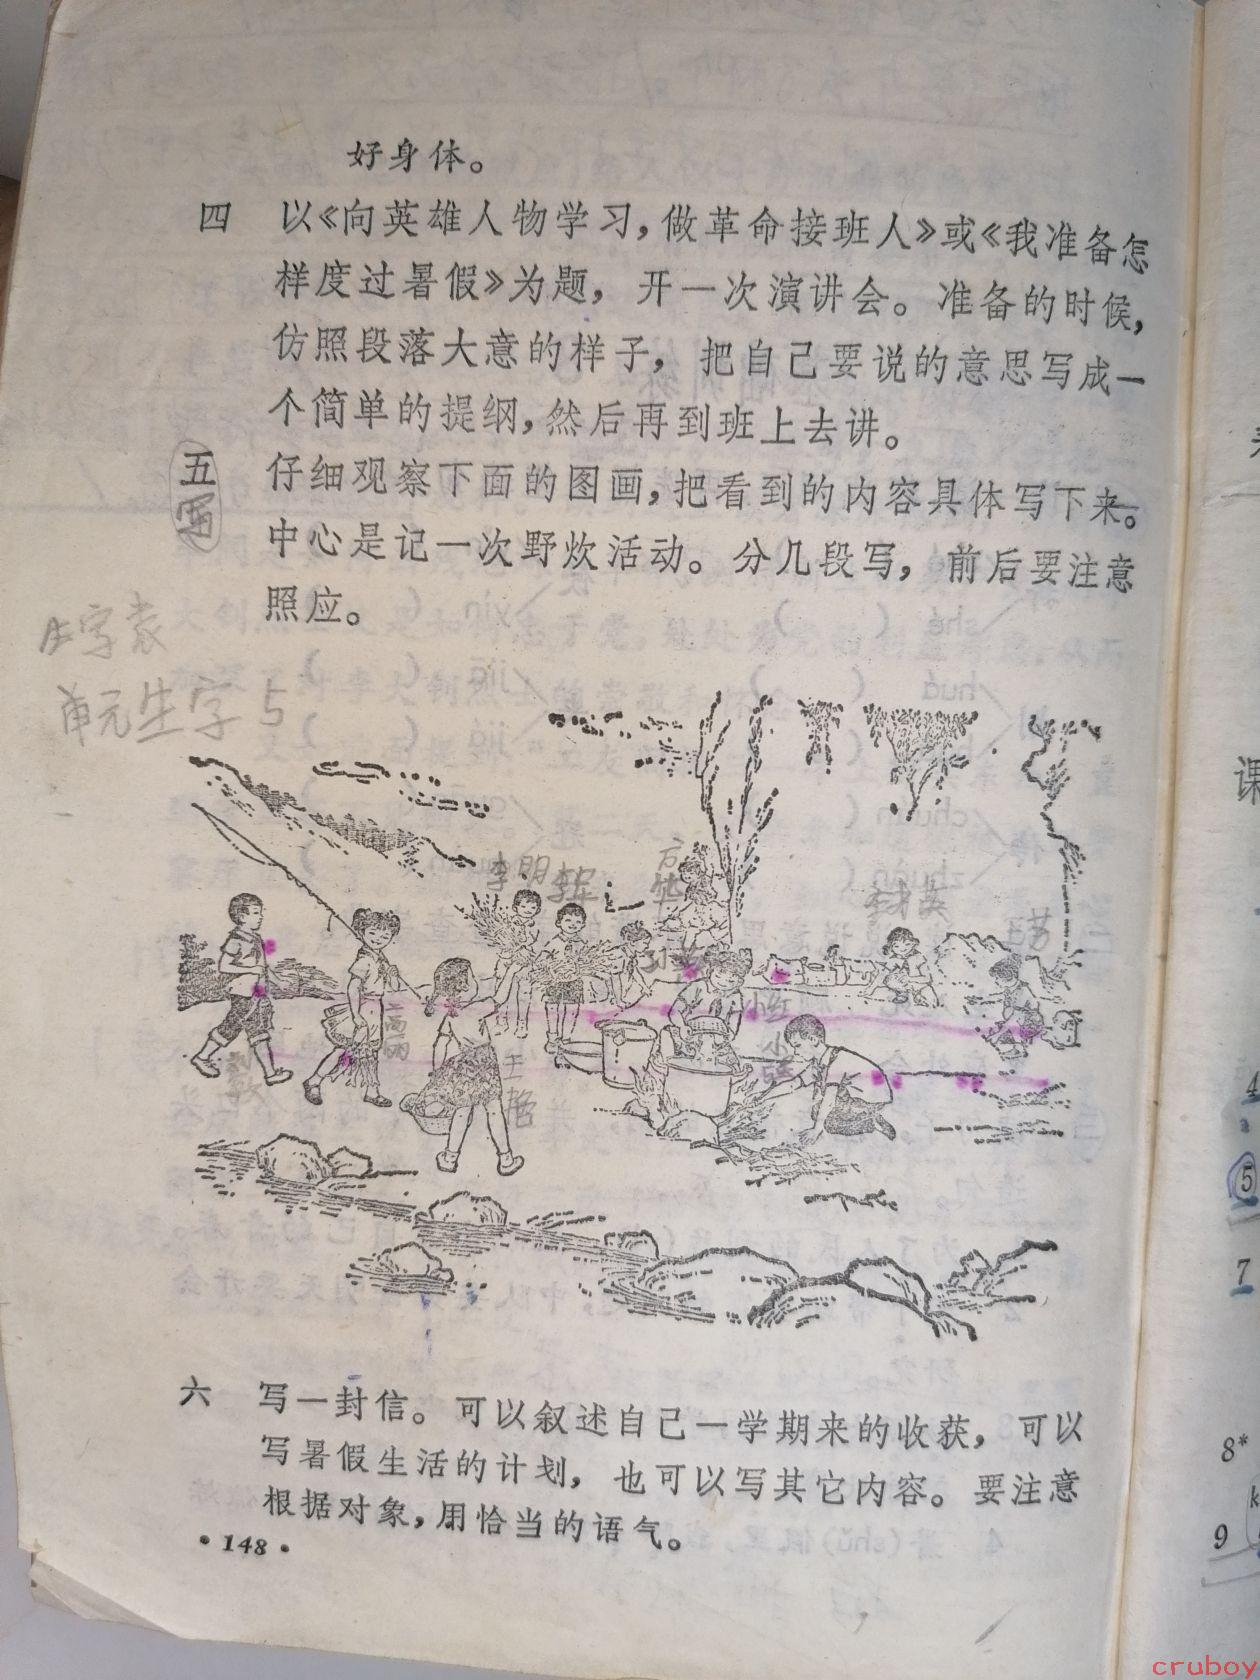 好身体。
四 以《向英雄人物学习，做革命接班人》或《我准备怎
样度过暑假》为题， 开一次演讲会。准备的时候，
仿照段落大意的样子， 把自己要说的意思写成一
个简单的提纲，然后再到班上去讲。
五 仔细观察下面的图画，把看到的内容具体写下来。
写
中心是记一次野炊活动。分几段写， 前后要注意
照应。
生字表
单元生字5
李明
李军
方华
李英
小兰
小红
小强
高丽
王艳
刘敬
六 写一封信。可以叙述自己一学期来的收获， 可以
写暑假生活的计划， 也可以写其它内容。要注意
根据对象，用恰当的语气。
·148·
课
4
5
7
8*
9
cruboy